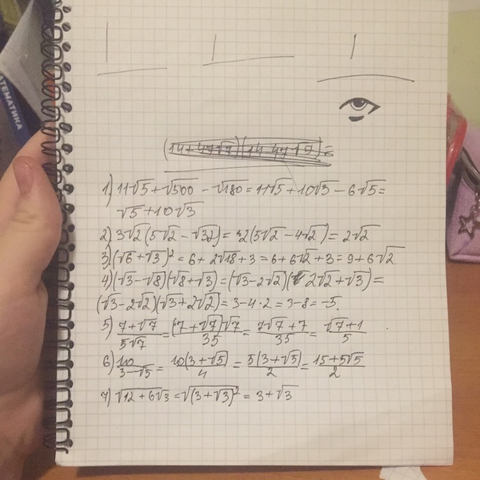 МАТЕМАТИКА
1) 11√5 + √500 - √180 = 11√5 + 10√3 - 6√5 =
√5 + 10√3
2) 3√2 (5√2 - √32) = 2(5√2 - 4√2) = 2√2
3) (√6 + √3)² = 6 + 2√18 + 3 = 6 + 6√2 + 3 = 9 + 6√2
4) (√3 - √8)(√8 + √3) = (√3 - 2√2)(2√2 + √3) =
(√3 - 2√2)(√3 + 2√2) = 3 - 4·2 = 3 - 8 = -5.
5) (7 + √7)/(5√7) = ((7 + √7)√7)/35 = (7√7 + 7)/35 = (√7 + 1)/5
6) 10/(3 - √5) = 10(3 + √5)/4 = 5(3 + √5)/2 = (15 + 5√5)/2
7) √(12 + 6√3) = √((3 + √3)²) = 3 + √3